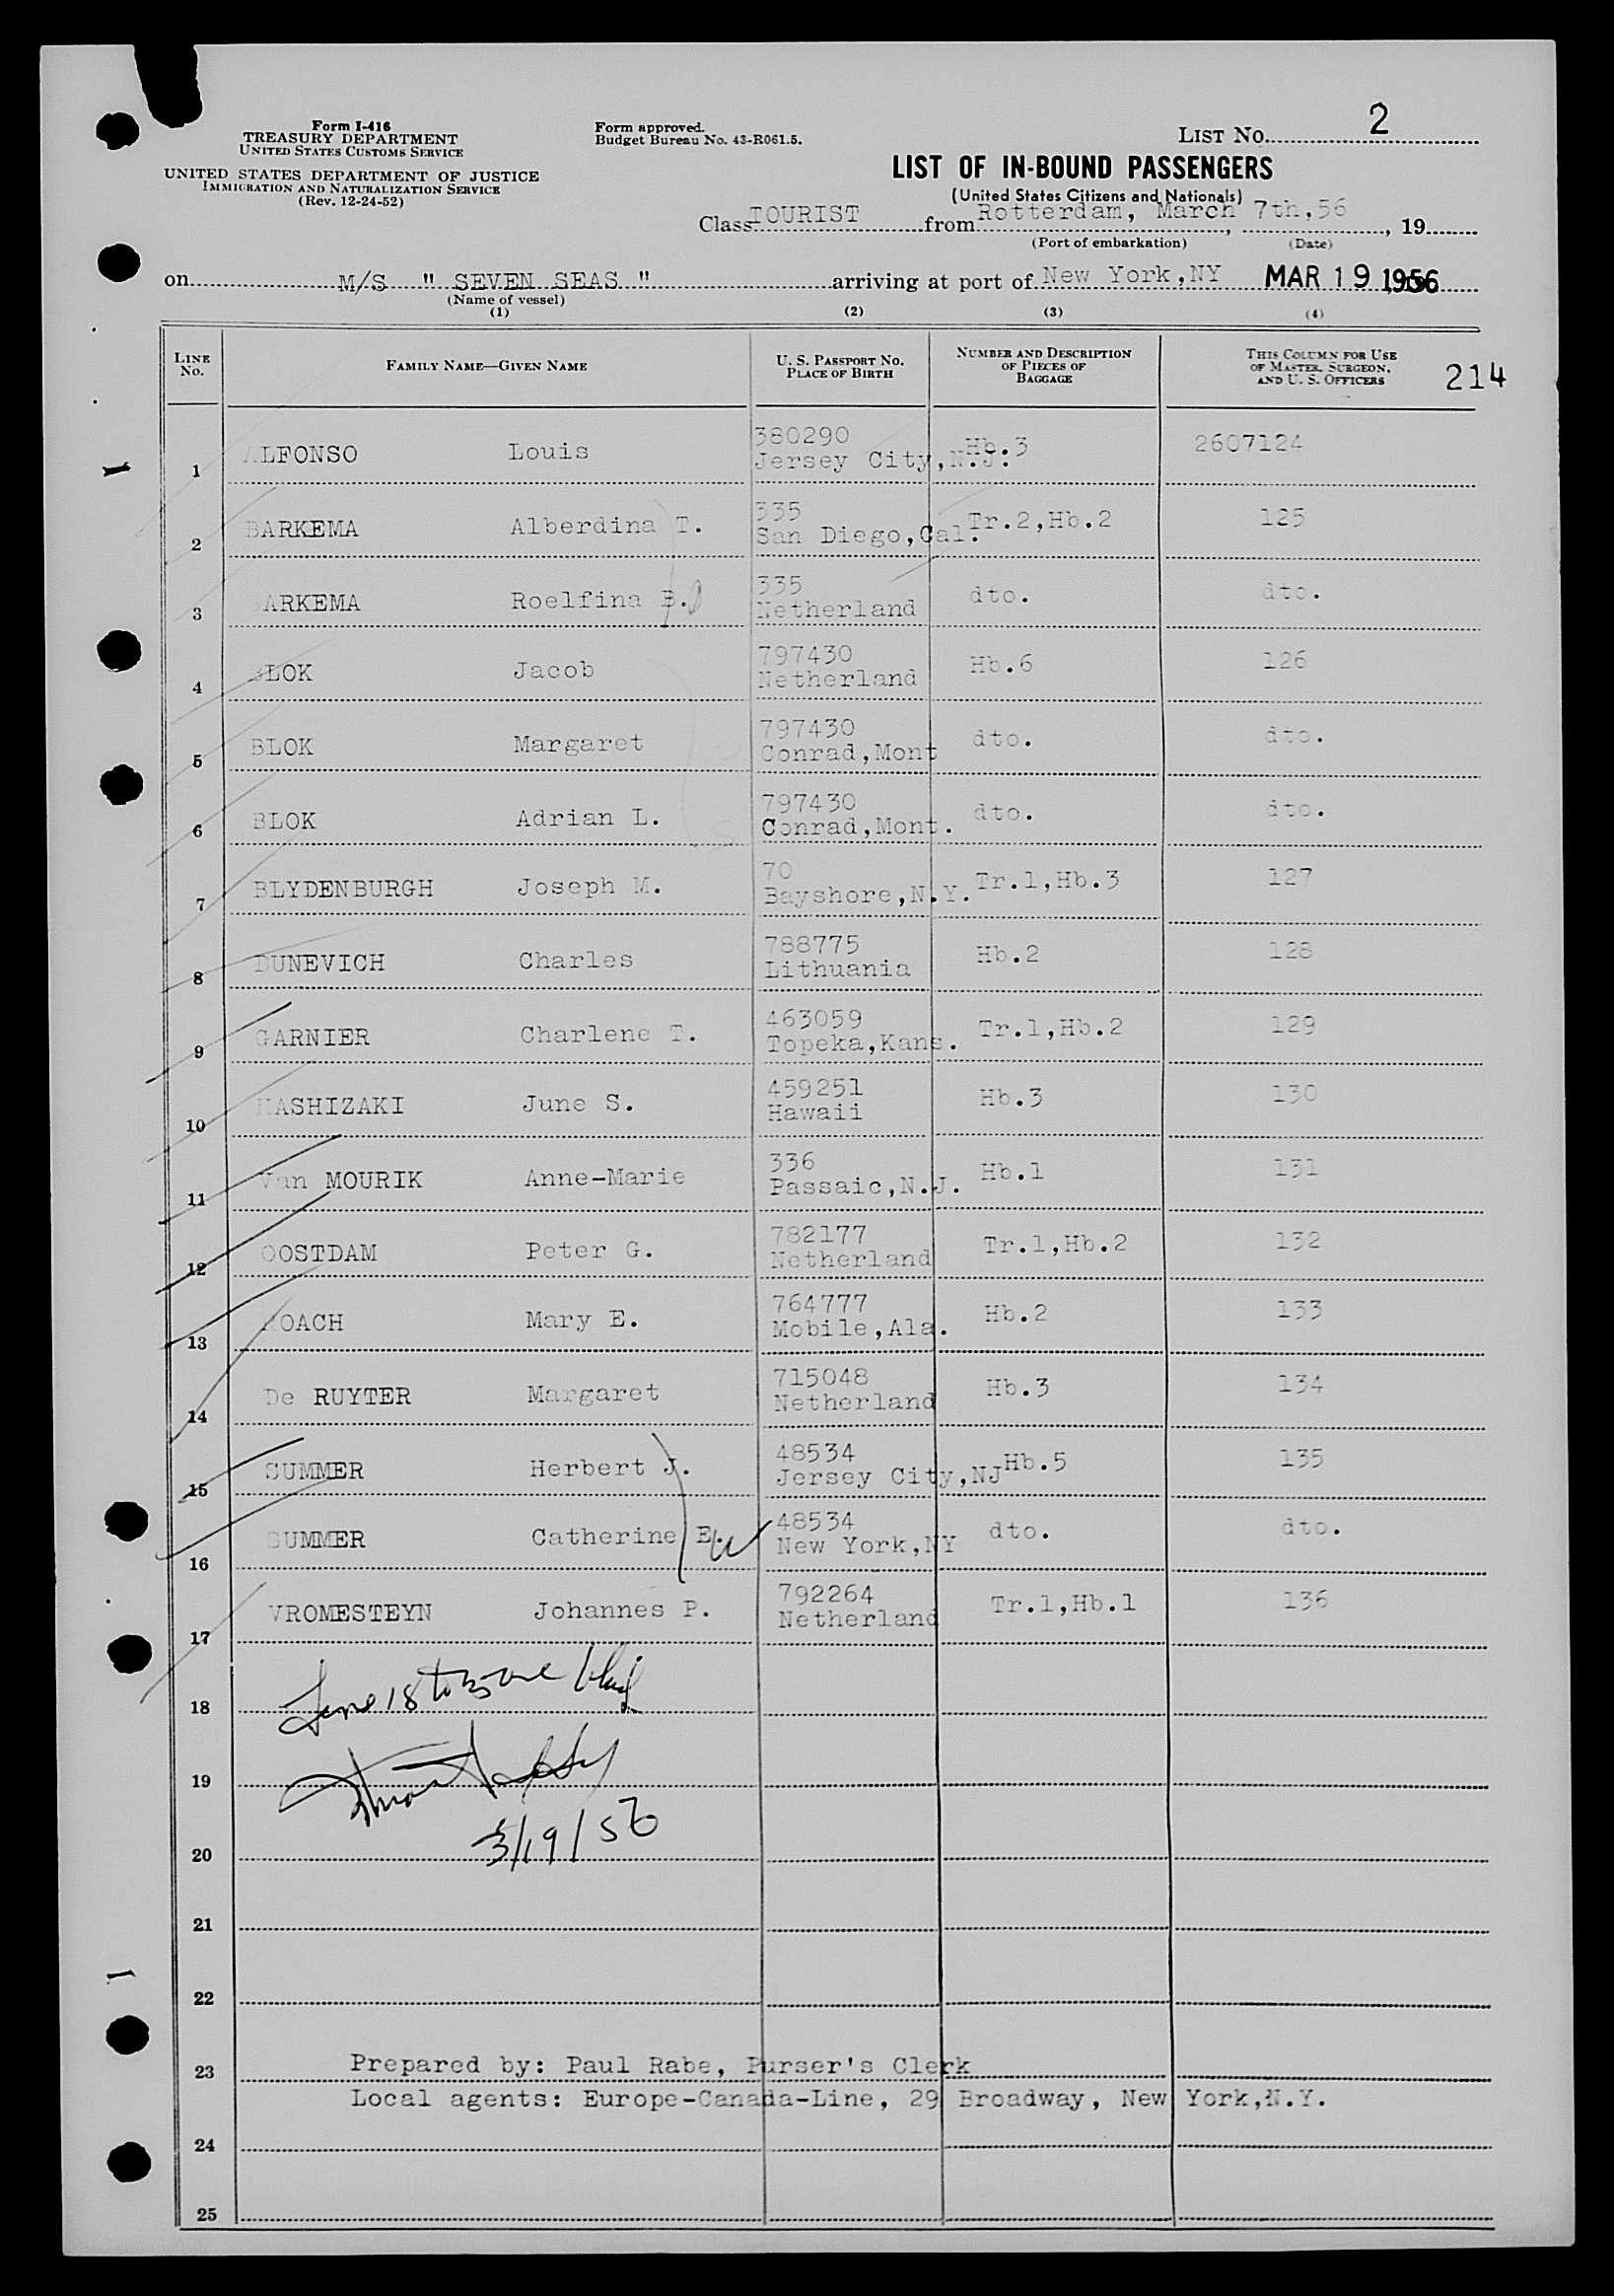 Form I-416
TREASURY DEPARTMENT
UNITED STATES CUSTOMS SERVICE
UNITED STATES DEPARTMENT OF JUSTICE
IMMIGRATION AND NATURALIZATION SERVICE
(Rev. 12-24-52)
Form approved.
Budget Bureau No. 43-R061.5.
LIST NO. 2
LIST OF IN-BOUND PASSENGERS
(United States Citizens and Nationals)
Class TOURIST from Rotterdam, March 7th,56, 19
(Port of embarkation) (Date)
on M/S " SEVEN SEAS " arriving at port of New York,NY MAR 19 1956
(Name of vessel)
(1) (2) (3) (4)
LINE NO. FAMILY NAME—GIVEN NAME U. S. PASSPORT NO. PLACE OF BIRTH NUMBER AND DESCRIPTION OF PIECES OF BAGGAGE THIS COLUMN FOR USE OF MASTER, SURGEON, AND U. S. OFFICERS 214
1 ALFONSO Louis 380290 Jersey City,N.J. Hb.3 2607124
2 BARKEMA Alberdina T. 335 San Diego,Cal. Tr.2,Hb.2 125
3 BARKEMA Roelfina B. 335 Netherland dto. dto.
4 BLOK Jacob 797430 Netherland Hb.6 126
5 BLOK Margaret 797430 Conrad,Mont dto. dto.
6 BLOK Adrian L. 797430 Conrad,Mont. dto. dto.
7 BLYDENBURGH Joseph M. 70 Bayshore,N.Y. Tr.1,Hb.3 127
8 BUNEVICH Charles 788775 Lithuania Hb.2 128
9 GARNIER Charlene T. 463059 Topeka,Kans. Tr.1,Hb.2 129
10 HASHIZAKI June S. 459251 Hawaii Hb.3 130
11 Van MOURIK Anne-Marie 336 Passaic,N.J. Hb.1 131
12 OOSTDAM Peter G. 782177 Netherland Tr.1,Hb.2 132
13 ROACH Mary E. 764777 Mobile,Ala. Hb.2 133
14 De RUYTER Margaret 715048 Netherland Hb.3 134
15 SUMMER Herbert J. 48534 Jersey City,NJ Hb.5 135
16 SUMMER Catherine E. 48534 New York,NY dto. dto.
17 VROMESTEYN Johannes P. 792264 Netherland Tr.1,Hb.1 136
18
19
20 3/19/56
21
22
23 Prepared by: Paul Rabe, Purser's Clerk
Local agents: Europe-Canada-Line, 29 Broadway, New York,N.Y.
24
25